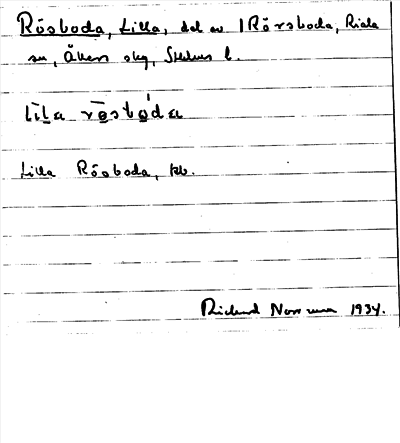 Rösboda, Lilla, del av 1 Rörsboda, Riala
sn, Åkers skg, Sthlms l.
lila rösboda
Lilla Rösboda, kb.
Rickard Norrman 1934.